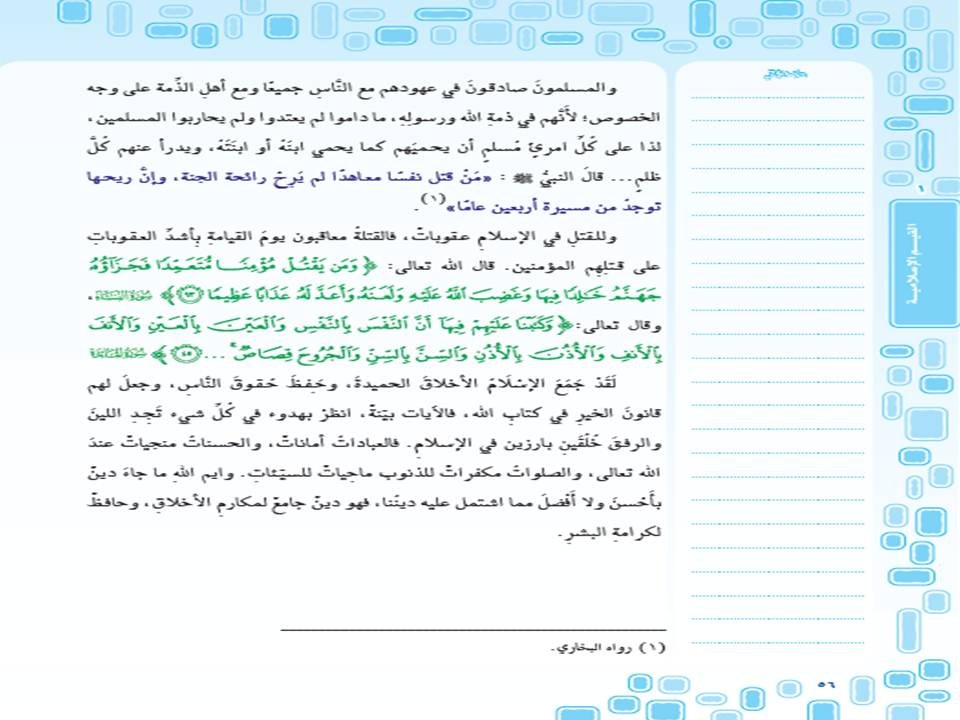 والمسلمونَ صادقونَ في عهودهم مع النَّاسِ جميعًا ومع أهلِ الذِّمة على وجه
الخصوص؛ لأنَّهم في ذمةِ الله ورسولِهِ، ما داموا لم يعتدوا ولم يحاربوا المسلمين،
لذا على كُلِّ امرئٍ مُسلمٍ أن يحميَهم كما يحمي ابنَهُ أو ابنَتَهُ، ويدرأ عنهم كُلَّ
ظلمٍ... قالَ النبيُّ ﷺ : «مَنْ قتل نفسًا معاهدًا لم يَرِحْ رائحة الجنة، وإنَّ ريحها
توجدُ من مسيرة أربعين عامًا»(١).
وللقتلِ في الإسلامِ عقوباتٌ، فالقتلةُ معاقبون يومَ القيامةِ بأشدِّ العقوباتِ
على قتلِهم المؤمنين. قال الله تعالى: ﴿ وَمَن يَقْتُلْ مُؤْمِنًا مُّتَعَمِّدًا فَجَزَاؤُهُ
جَهَنَّمُ خَالِدًا فِيهَا وَغَضِبَ اللَّهُ عَلَيْهِ وَلَعَنَهُ وَأَعَدَّ لَهُ عَذَابًا عَظِيمًا ﴿٩٣﴾ ﴾ سُورَةُ النِّسَاء،
وقال تعالى: ﴿ وَكَتَبْنَا عَلَيْهِمْ فِيهَا أَنَّ النَّفْسَ بِالنَّفْسِ وَالْعَيْنَ بِالْعَيْنِ وَالْأَنفَ
بِالْأَنفِ وَالْأُذُنَ بِالْأُذُنِ وَالسِّنَّ بِالسِّنِّ وَالْجُرُوحَ قِصَاصٌ ۚ ... ﴿٤٥﴾ ﴾ سُورَةُ المَائِدَة
لَقَدْ جَمَعَ الإسْلَامُ الأخلاقَ الحميدةَ، وحَفِظَ حُقوقَ النَّاسِ، وجعلَ لهم
قانونَ الخيرِ في كتابِ الله، فالآيات بيّنةٌ، انظرْ بهدوء في كُلِّ شيء تَجِدِ اللينَ
والرفقَ خُلُقَينِ بارزين في الإسلامِ. فالعباداتُ أماناتٌ، والحسناتُ منجياتٌ عندَ
الله تعالى، والصلواتُ مكفراتٌ للذنوبِ ماحِياتٌ للسيّئاتِ. وايم اللهِ ما جاءَ دينٌ
بأحْسنَ ولا أَفْضلَ مما اشتمل عليه ديننا، فهو دينٌ جامعٌ لمكارمِ الأخلاقِ، وحافظٌ
لكرامةِ البشرِ.
(١) رواه البخاري.
١
القيم الإسلامية
٥٦